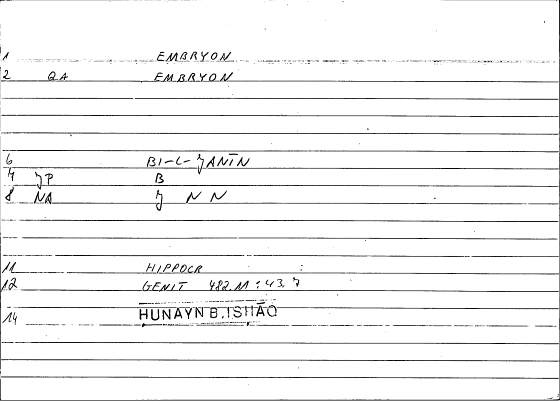 1 EMBRYON
2 QA EMBRYON
6 BI-L-JANĪN
7 JP B
8 NA J N N
11 HIPPOCR :
12 GENIT 482.11:43.7
14 HUNAYN B. ISHĀQ